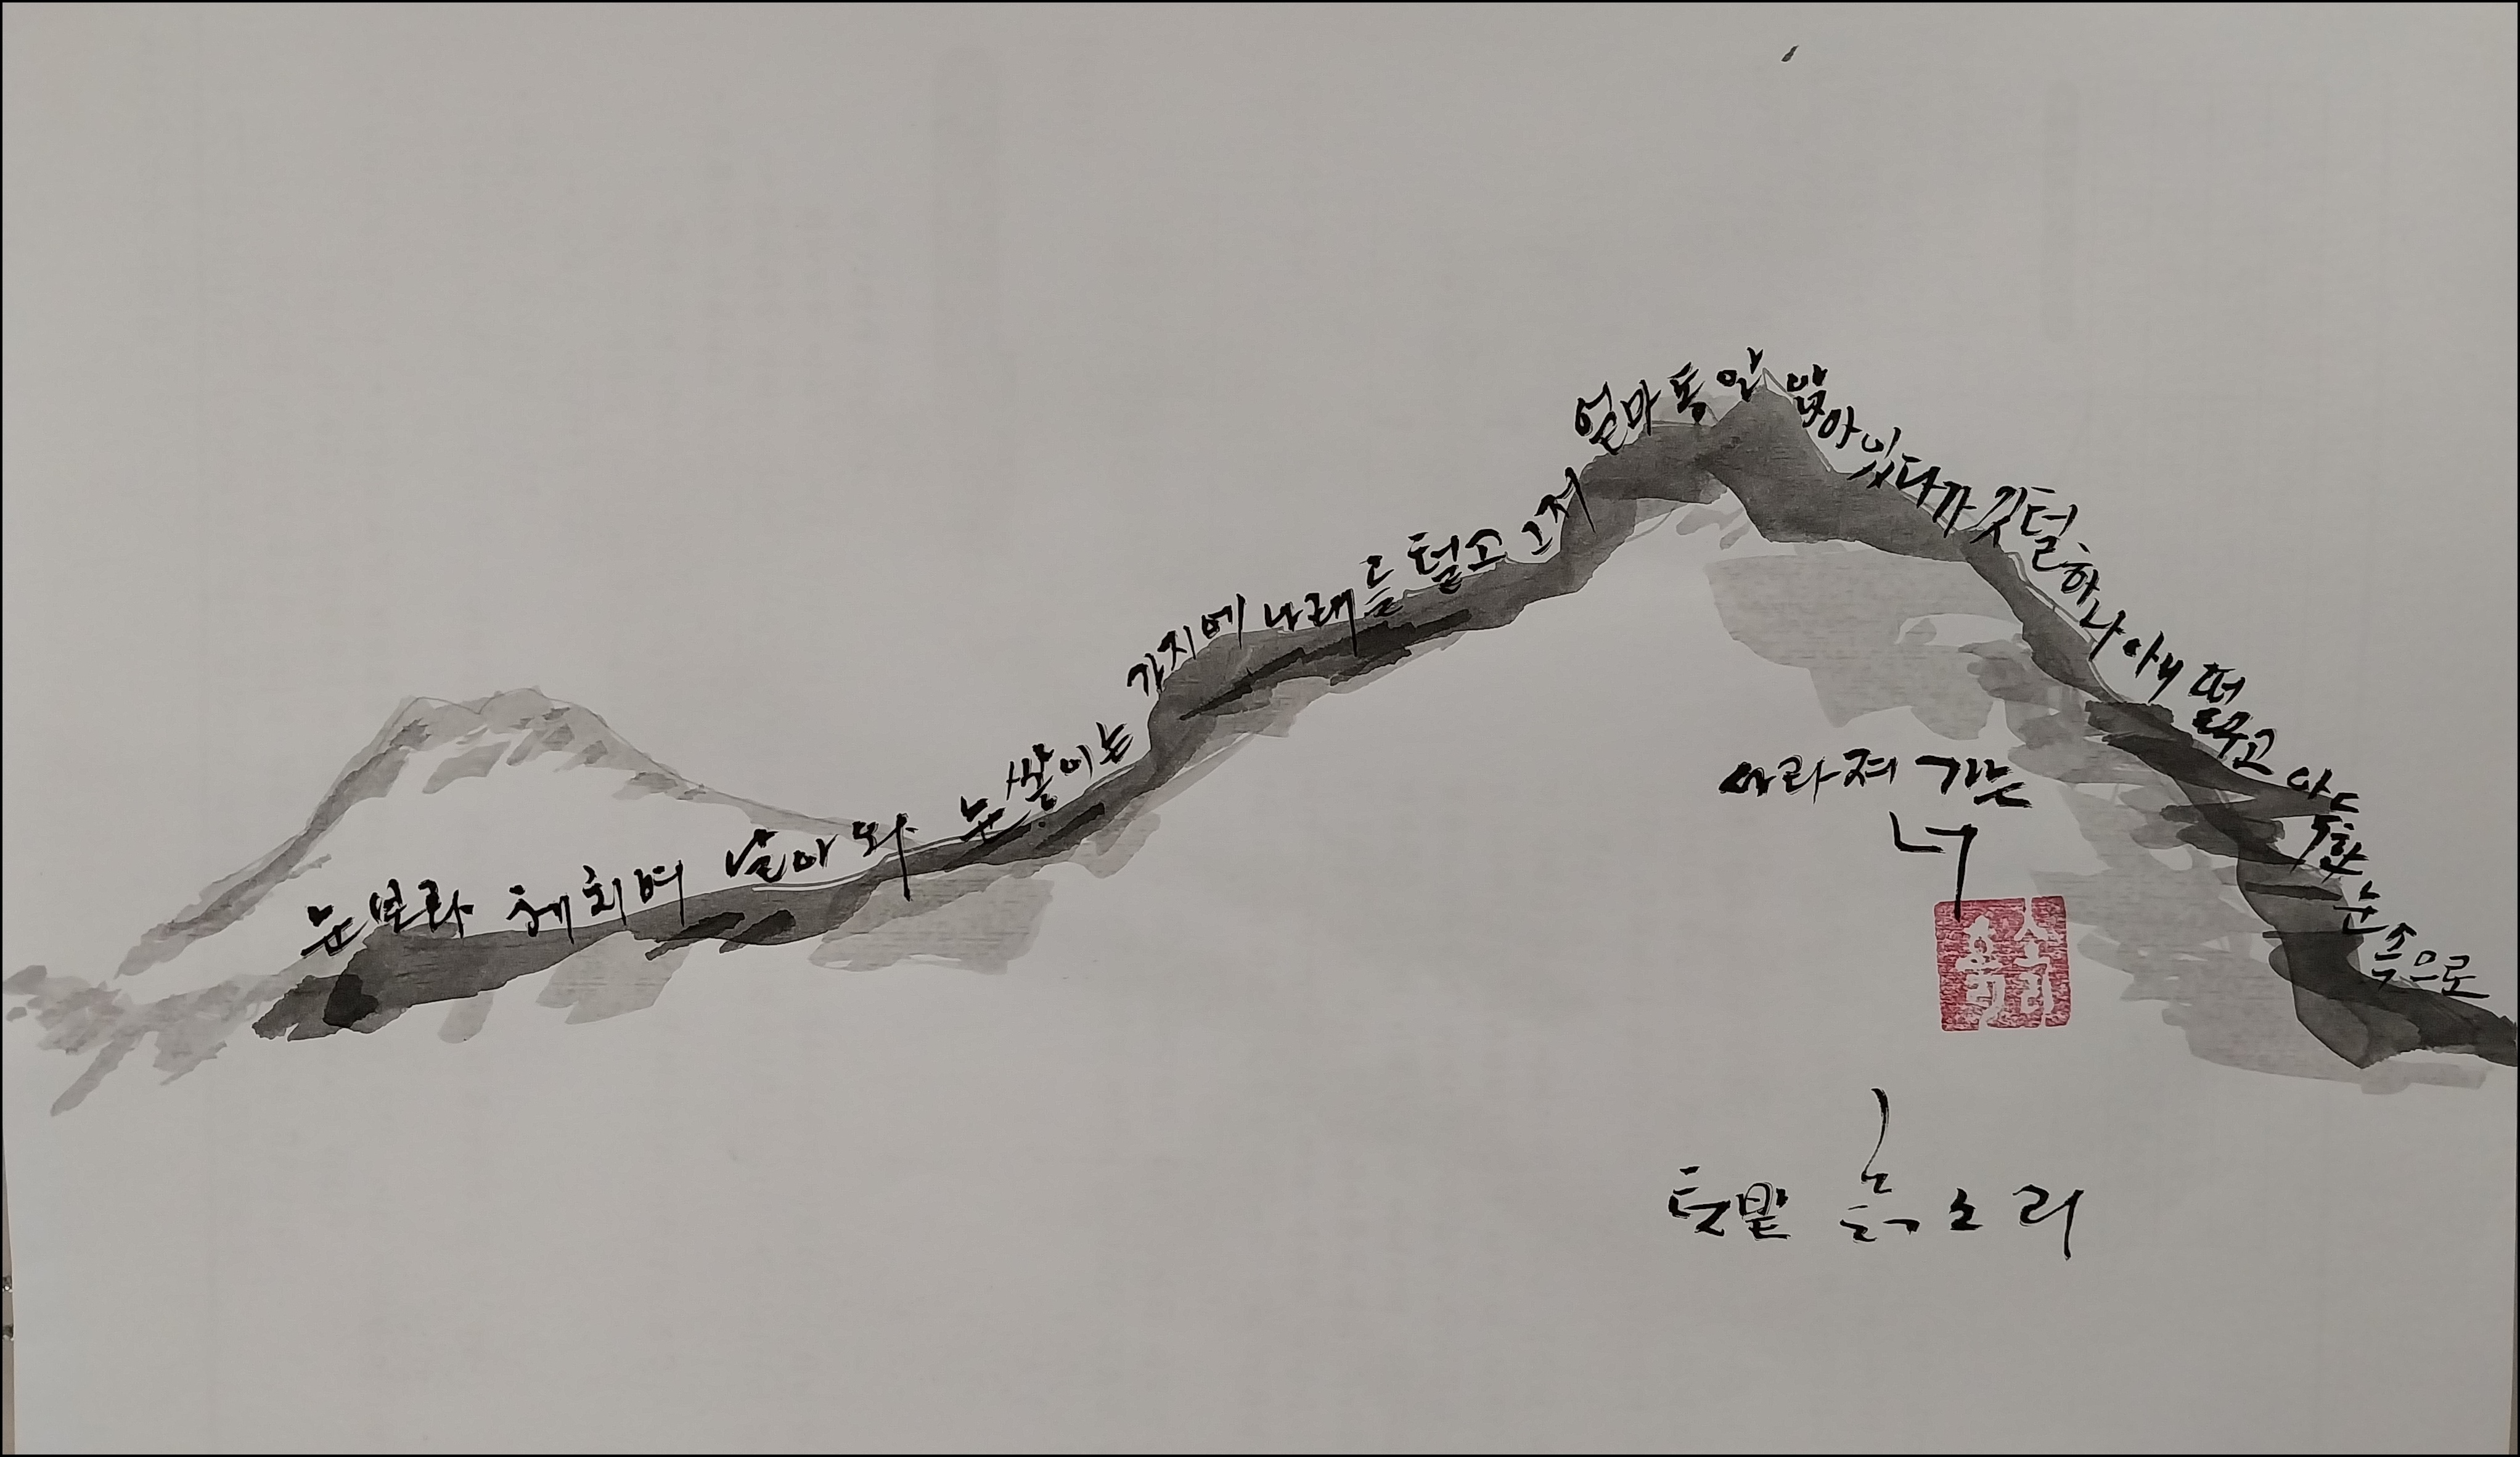 눈보라 헤치며 날아와 눈 쌓이는 가지에 나래를 털고 그저 얼마동안 앉아 있다가 깃털 하나 아니 떨구고 아득한 눈 속으로
사라져 가는
너
텃밭 흙소리